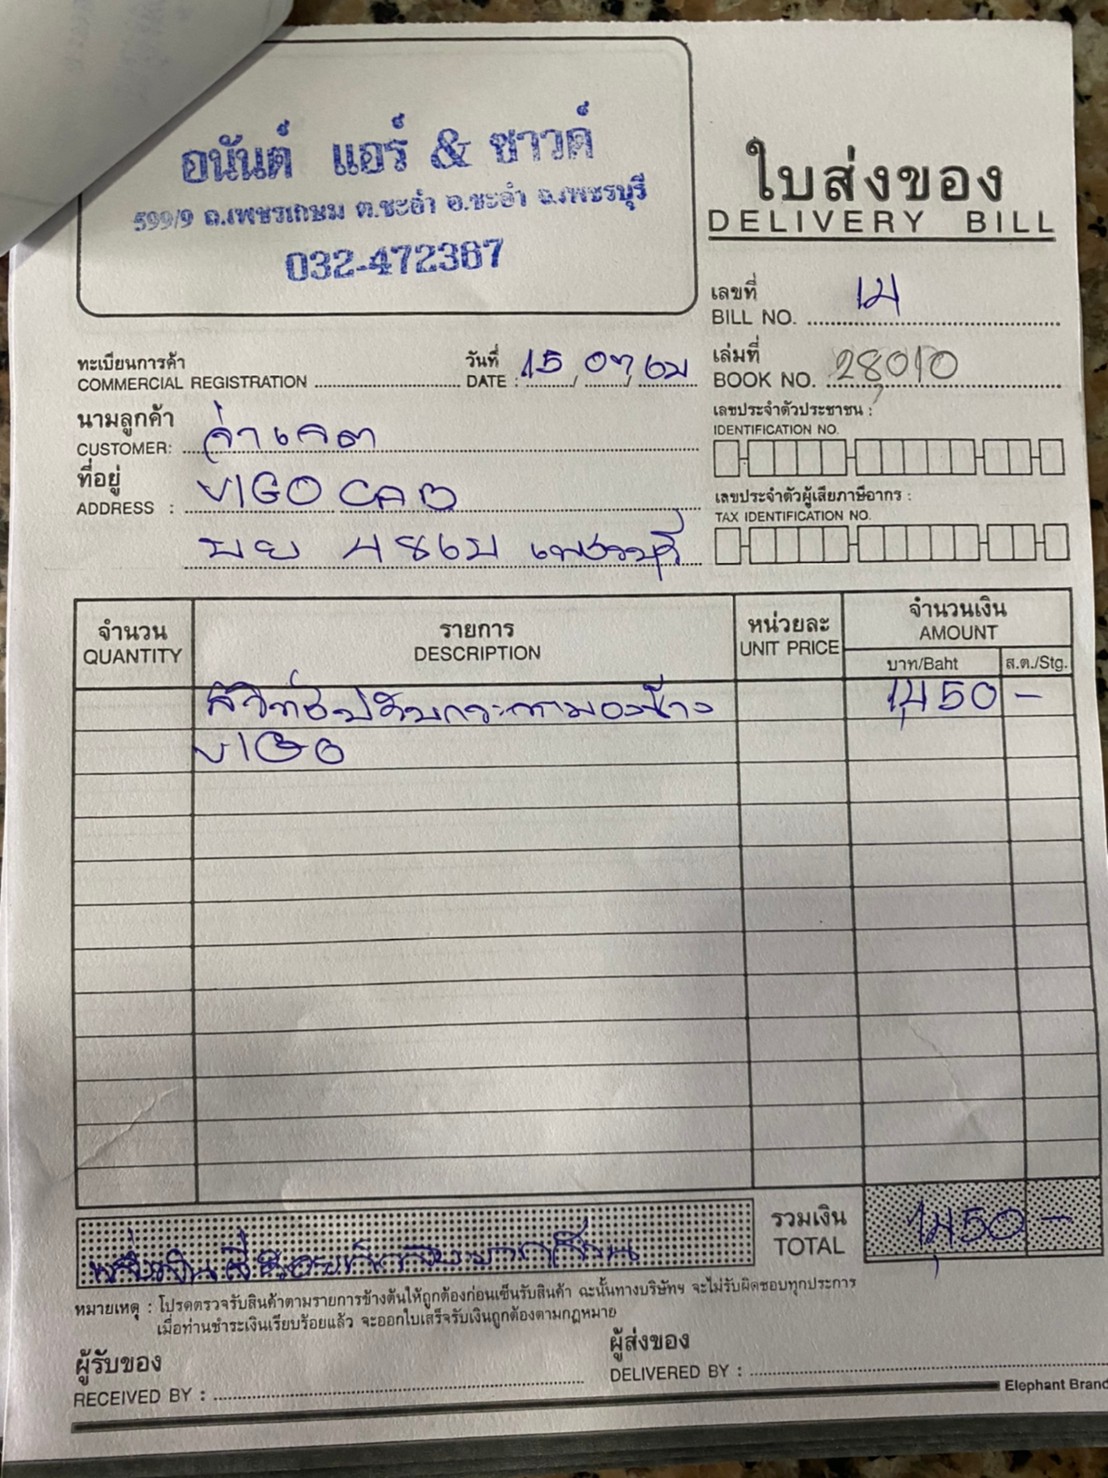 อนันต์ แอร์ & ซาวด์
599/9 ถ.เพชรเกษม ต.ชะอำ อ.ชะอำ จ.เพชรบุรี
032-472367
ใบส่งของ
DELIVERY BILL
เลขที่
BILL NO.
ทะเบียนการค้า
COMMERCIAL REGISTRATION
วันที่
DATE : 15 / 07 /
เล่มที่
BOOK NO. 28010
นามลูกค้า
CUSTOMER:
ที่อยู่
ADDRESS : VIGO CAB
เพชรบุรี
เลขประจำตัวประชาชน :
IDENTIFICATION NO.
เลขประจำตัวผู้เสียภาษีอากร :
TAX IDENTIFICATION NO.
จำนวน
QUANTITY
รายการ
DESCRIPTION
หน่วยละ
UNIT PRICE
จำนวนเงิน
AMOUNT
บาท/Baht
ส.ต./Stg.
สวิทช์ปรับกระจกมองข้าง
VIGO
รวมเงิน
TOTAL
หมายเหตุ : โปรดตรวจรับสินค้าตามรายการข้างต้นให้ถูกต้องก่อนเซ็นรับสินค้า ฉะนั้นทางบริษัทฯ จะไม่รับผิดชอบทุกประการ
เมื่อท่านชำระเงินเรียบร้อยแล้ว จะออกใบเสร็จรับเงินถูกต้องตามกฎหมาย
ผู้รับของ
RECEIVED BY :
ผู้ส่งของ
DELIVERED BY :
Elephant Brand